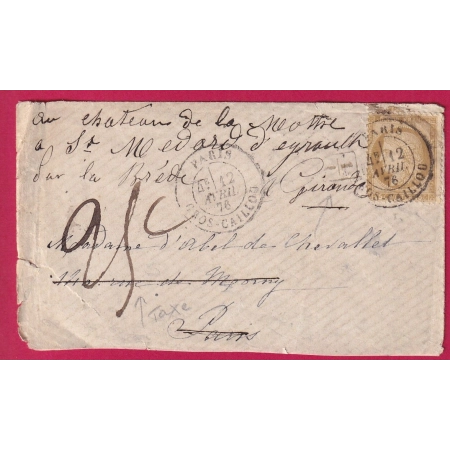 au chateau de la Motte
a St Medard d'eyrault
par la Brède
Gironde
PARIS
12
AVRIL
76
GROS-CAILLOU
PARIS
12
AVRIL
76
GROS-CAILLOU
25c
Madame d'Arbel de Chevallet
rue de Morny
Paris
Taxe